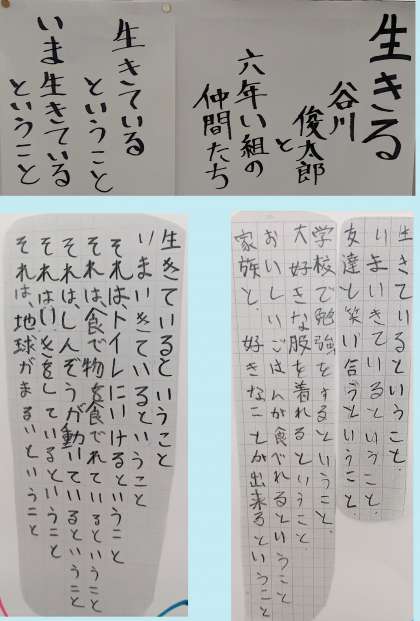 生きる
谷川
俊太郎
と
六年い組の
仲間たち
生きている
ということ
いま生きている
ということ
生きているということ.
いまいきているということ.
友達と笑い合うということ.
学校で勉強をするということ.
大好きな服を着れるということ.
おいしいごはんが食べれるということ
家族と、好きなことが出来るということ
生きているということ
いまいきているということ
それはトイレにいけるということ
それは食べ物を食べれているということ
それは、しんぞうが動いているということ
それはいきをしているということ
それは、地球がまるいということ